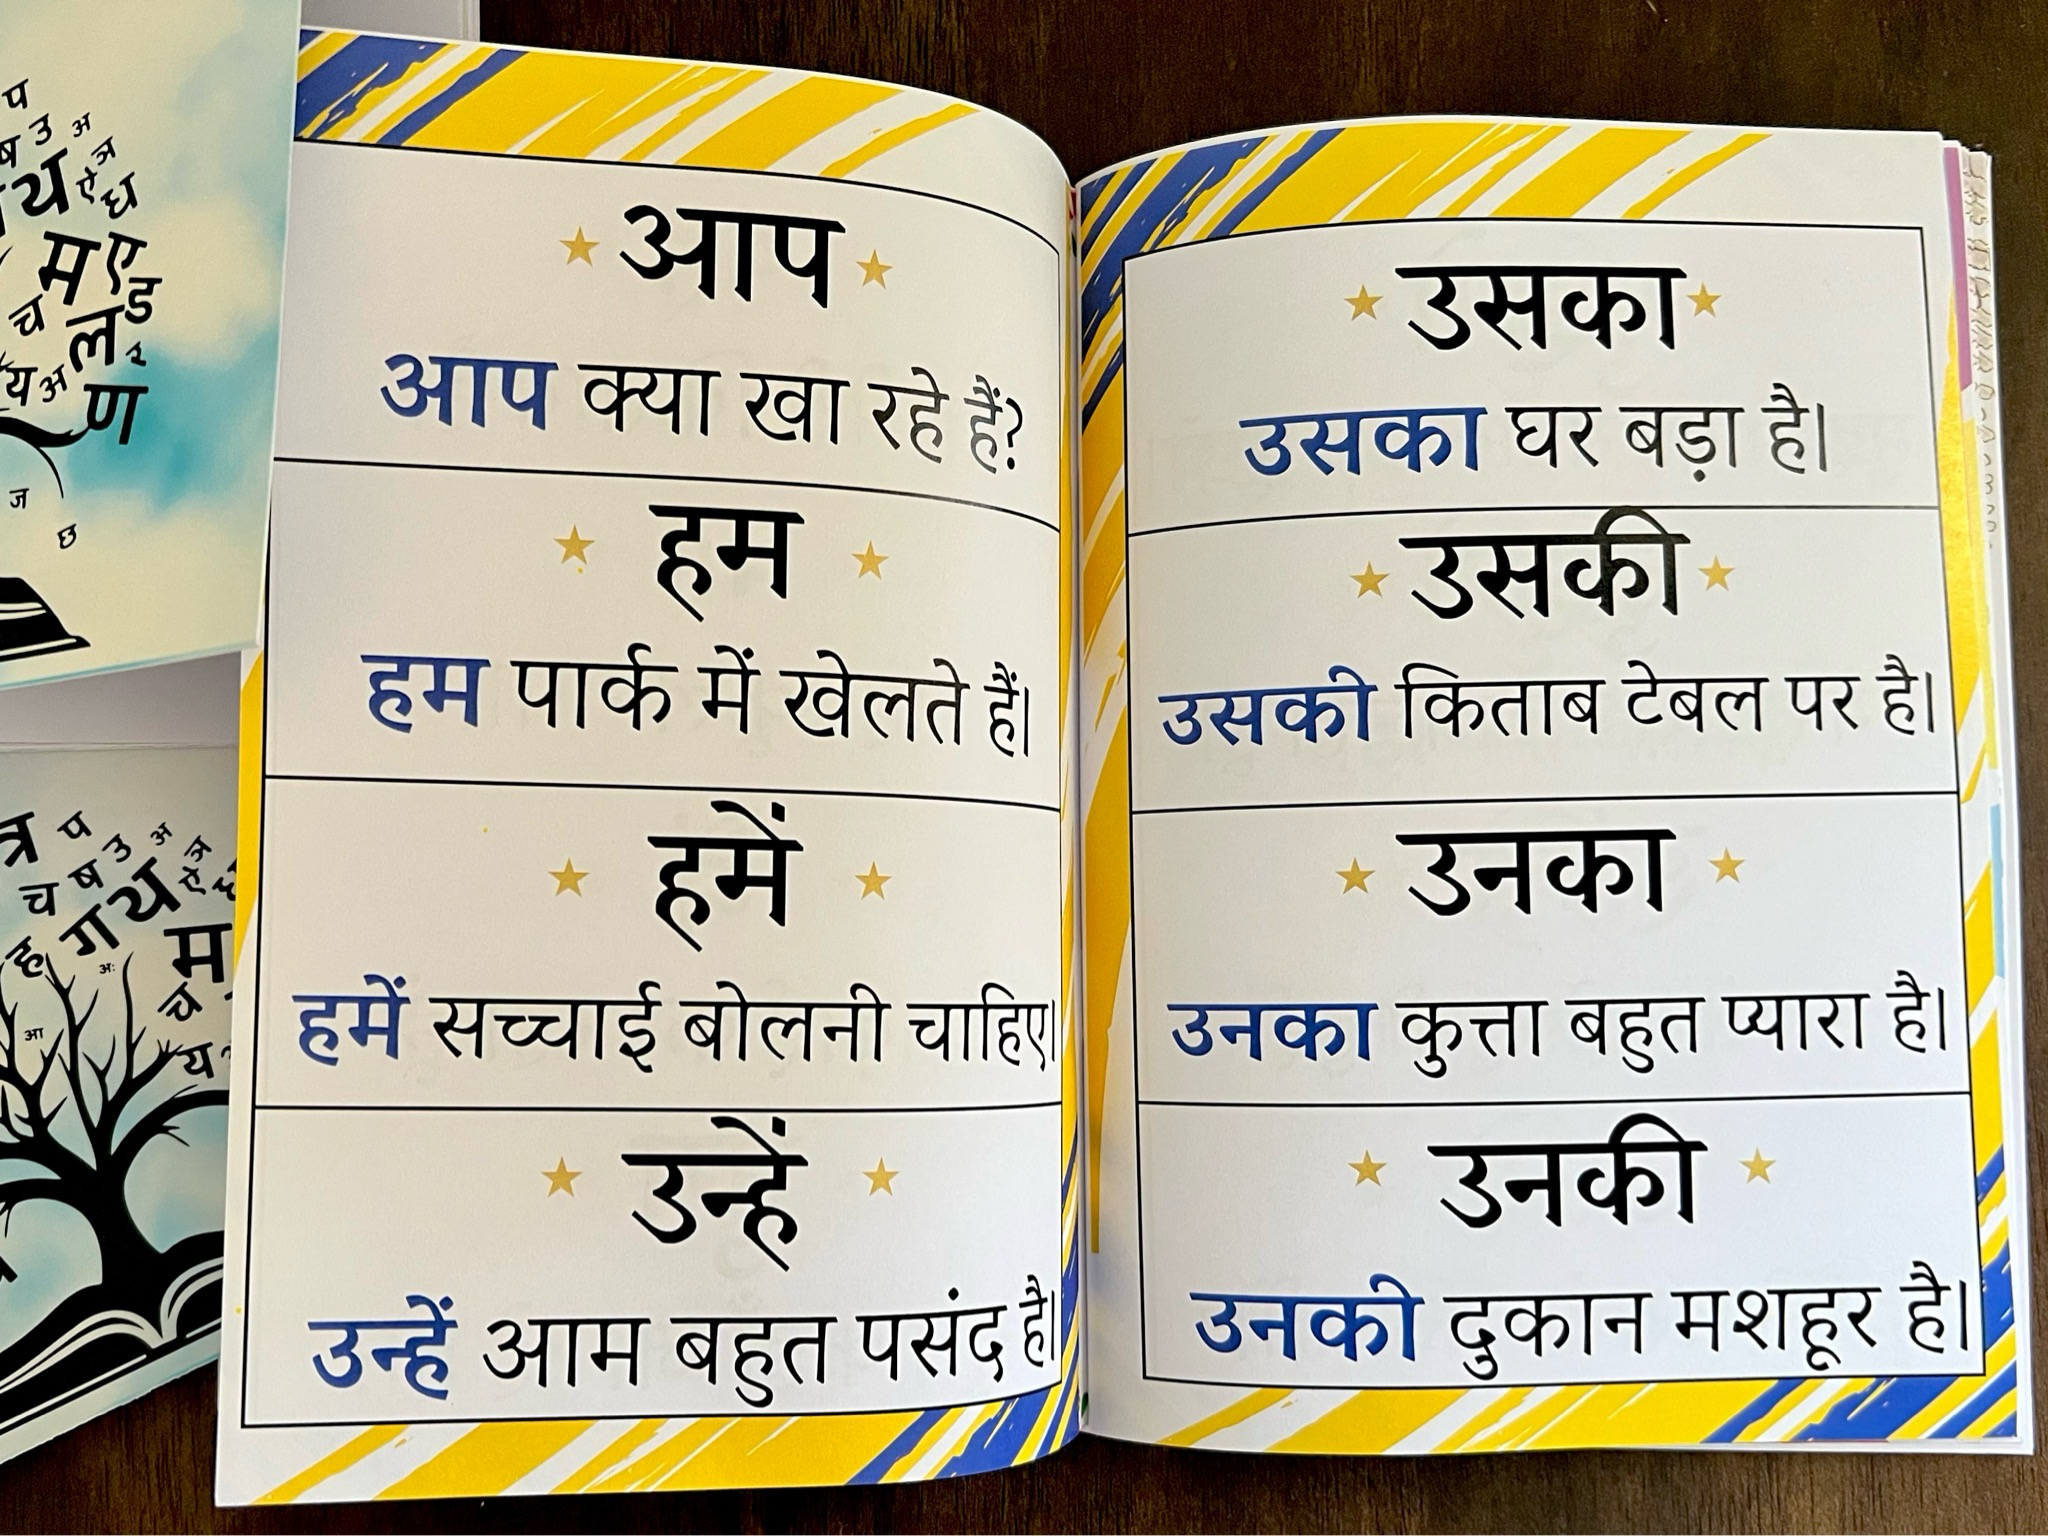 आप
आप क्या खा रहे हैं?
हम
हम पार्क में खेलते हैं।
हमें
हमें सच्चाई बोलनी चाहिए।
उन्हें
उन्हें आम बहुत पसंद है।
उसका
उसका घर बड़ा है।
उसकी
उसकी किताब टेबल पर है।
उनका
उनका कुत्ता बहुत प्यारा है।
उनकी
उनकी दुकान मशहूर है।
प
ष उ अ
थ ऐ ञ
घ
म ए
च ल ड
य अ र
ण
ज
छ
त्र प
च ष उ अ
ह ग थ ऐ ञ
अः म
च
आ
य